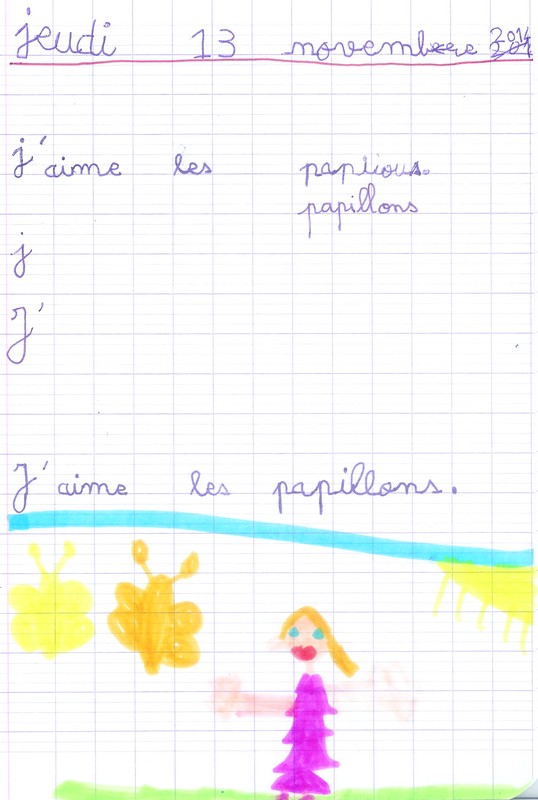 jeudi 13 novembre 2014
j'aime les paplious.
papillons
j
J'
J'aime les papillons.